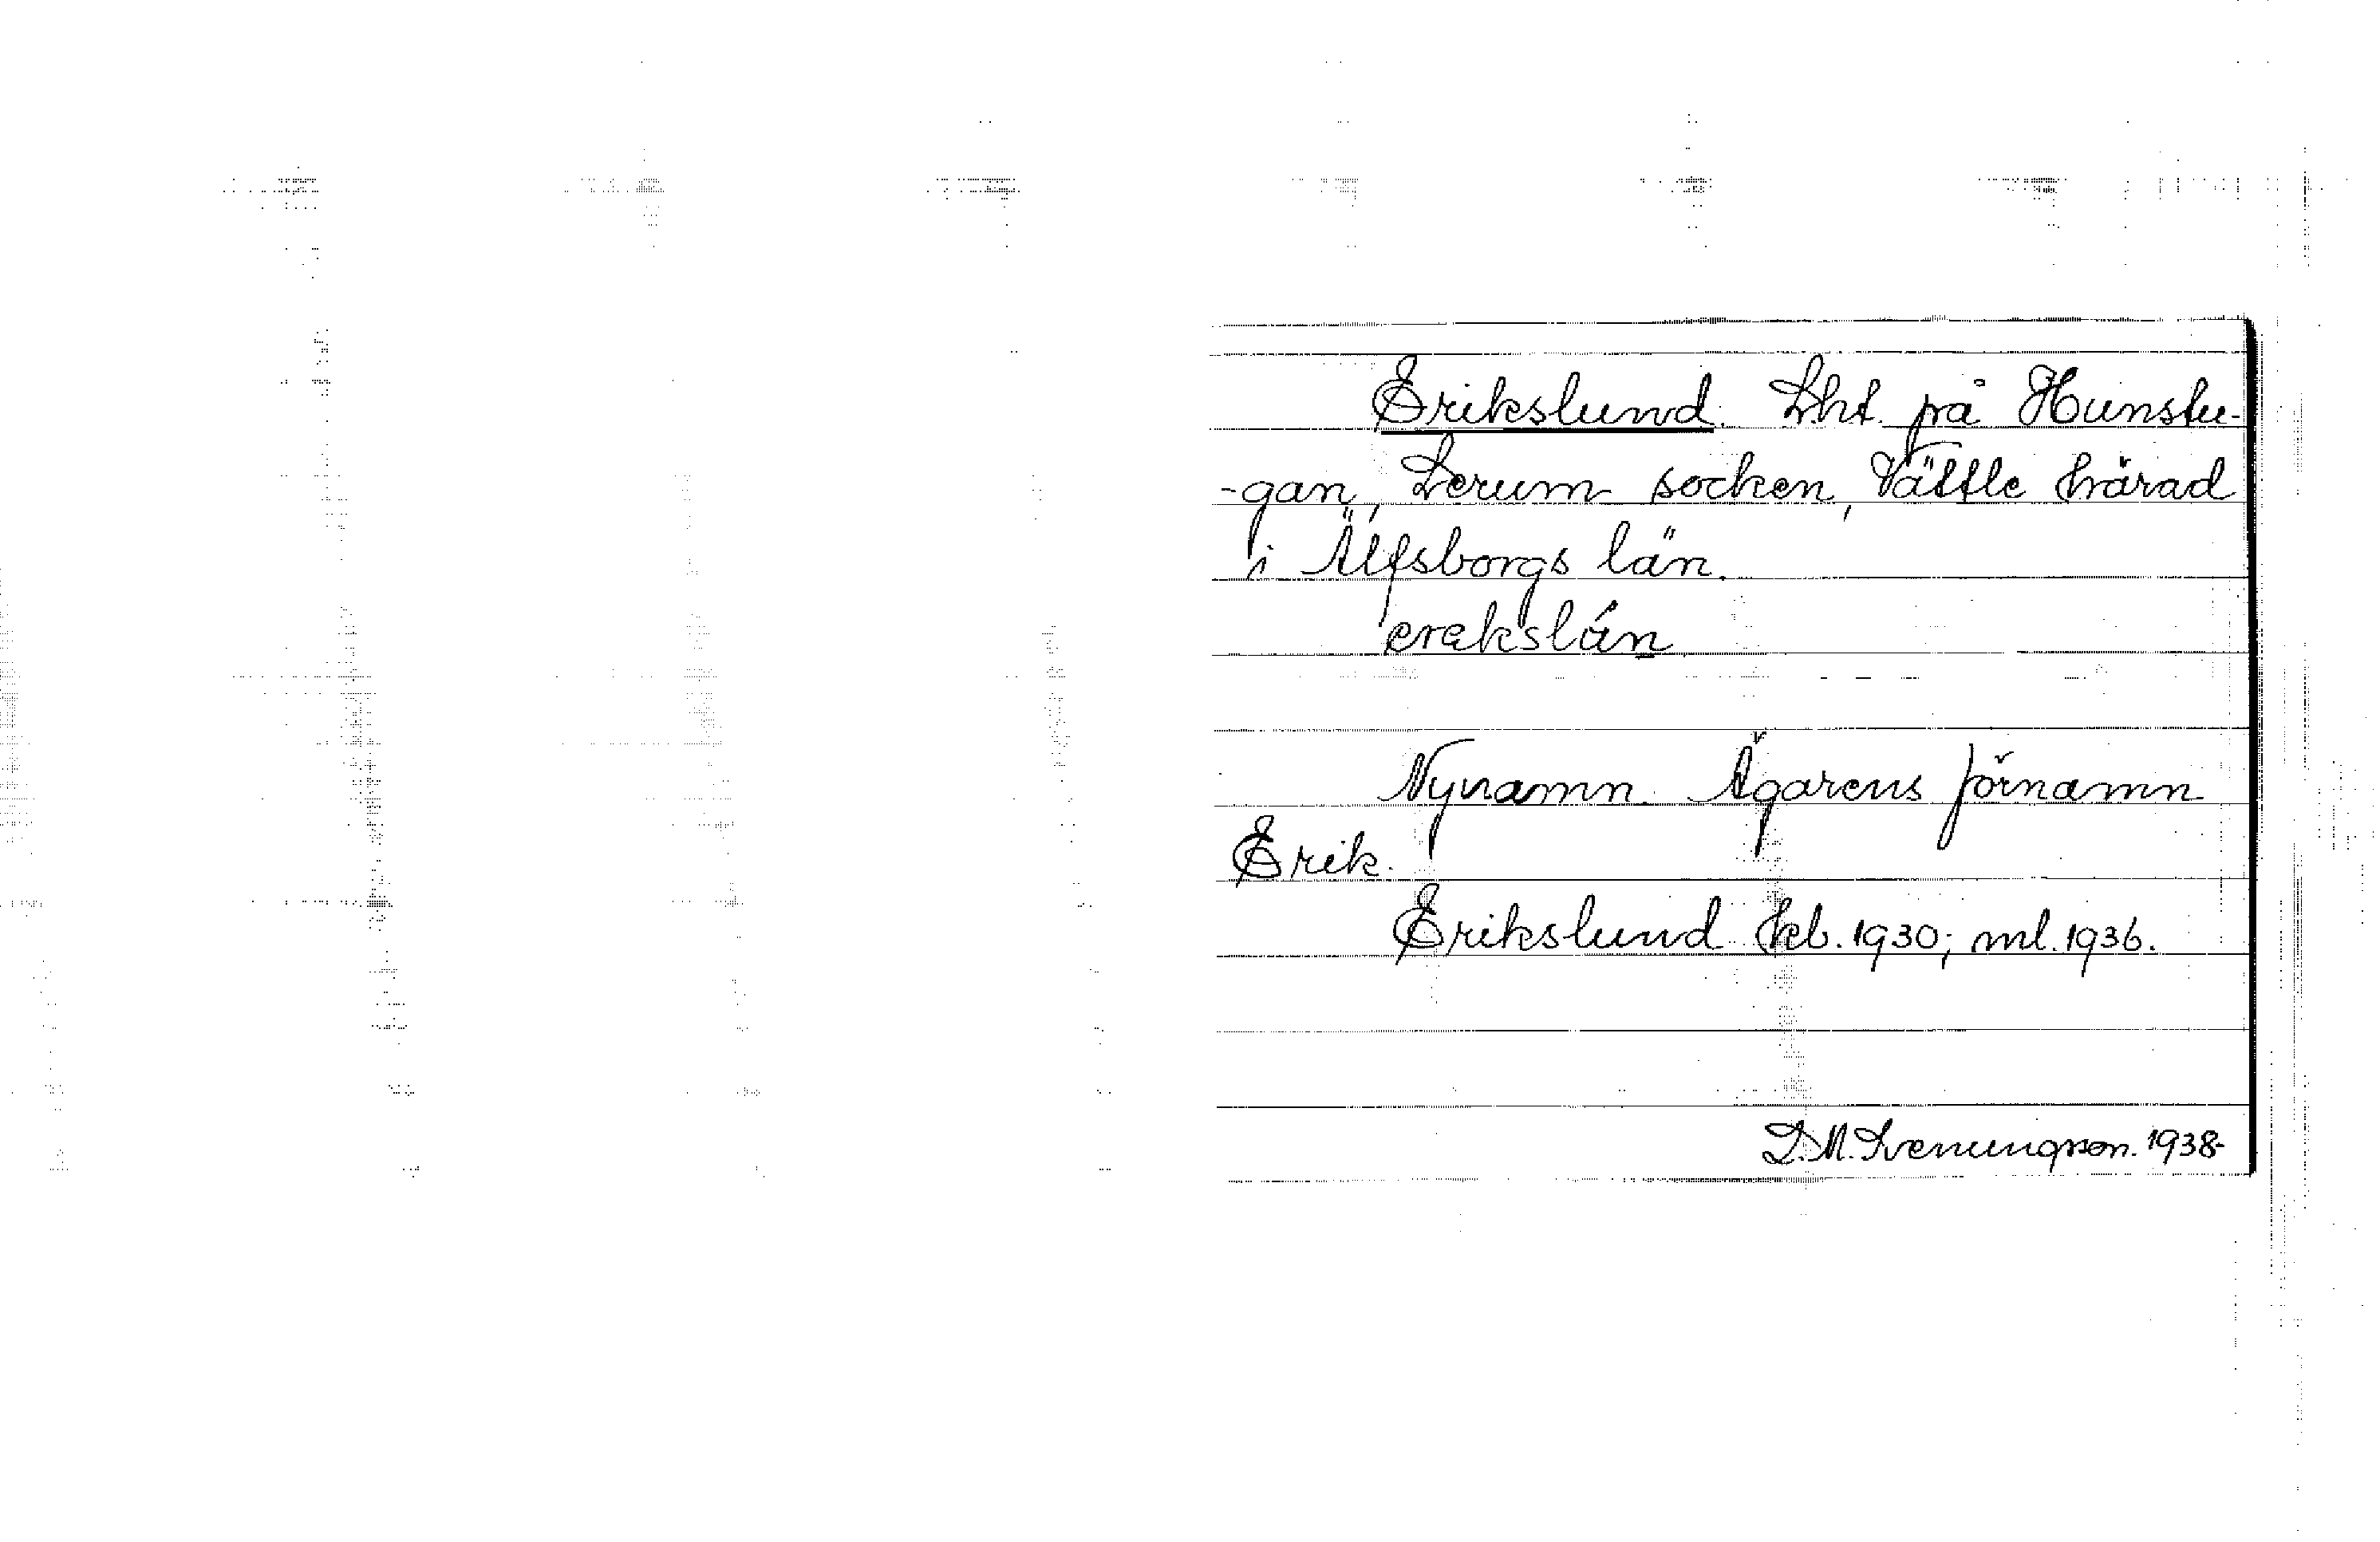 Erikslund. Lht. på Hunstu-
-gan, Lerum socken, Vättle härad
i Älfsborgs län.
erekslån
Nynamn. Ägarens förnamn
Erik.
Erikslund kb. 1930; ml. 1936.
D. M. Svenungsson. 1938-